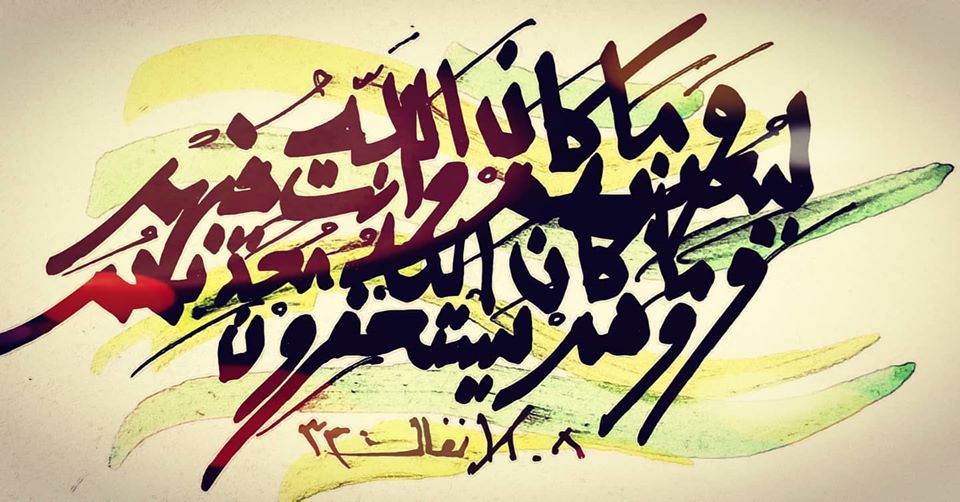 وما كان الله
ليعذبهم وانت فيهم
وما كان الله معذبهم
وهم يستغفرون
٨. الانفال ٣٣